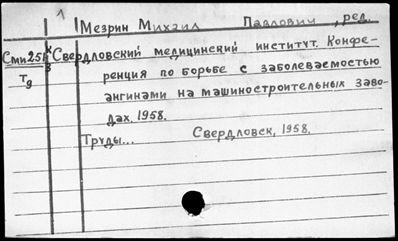 1
Мезрин Михаил Павлович, ред.
Сми251 Свердловский медицинский институт. Конфе-
Тд ренция по борьбе с заболеваемостью
ангинами на машиностроительных заво-
дах. 1958.
Труды... Свердловск, 1958.